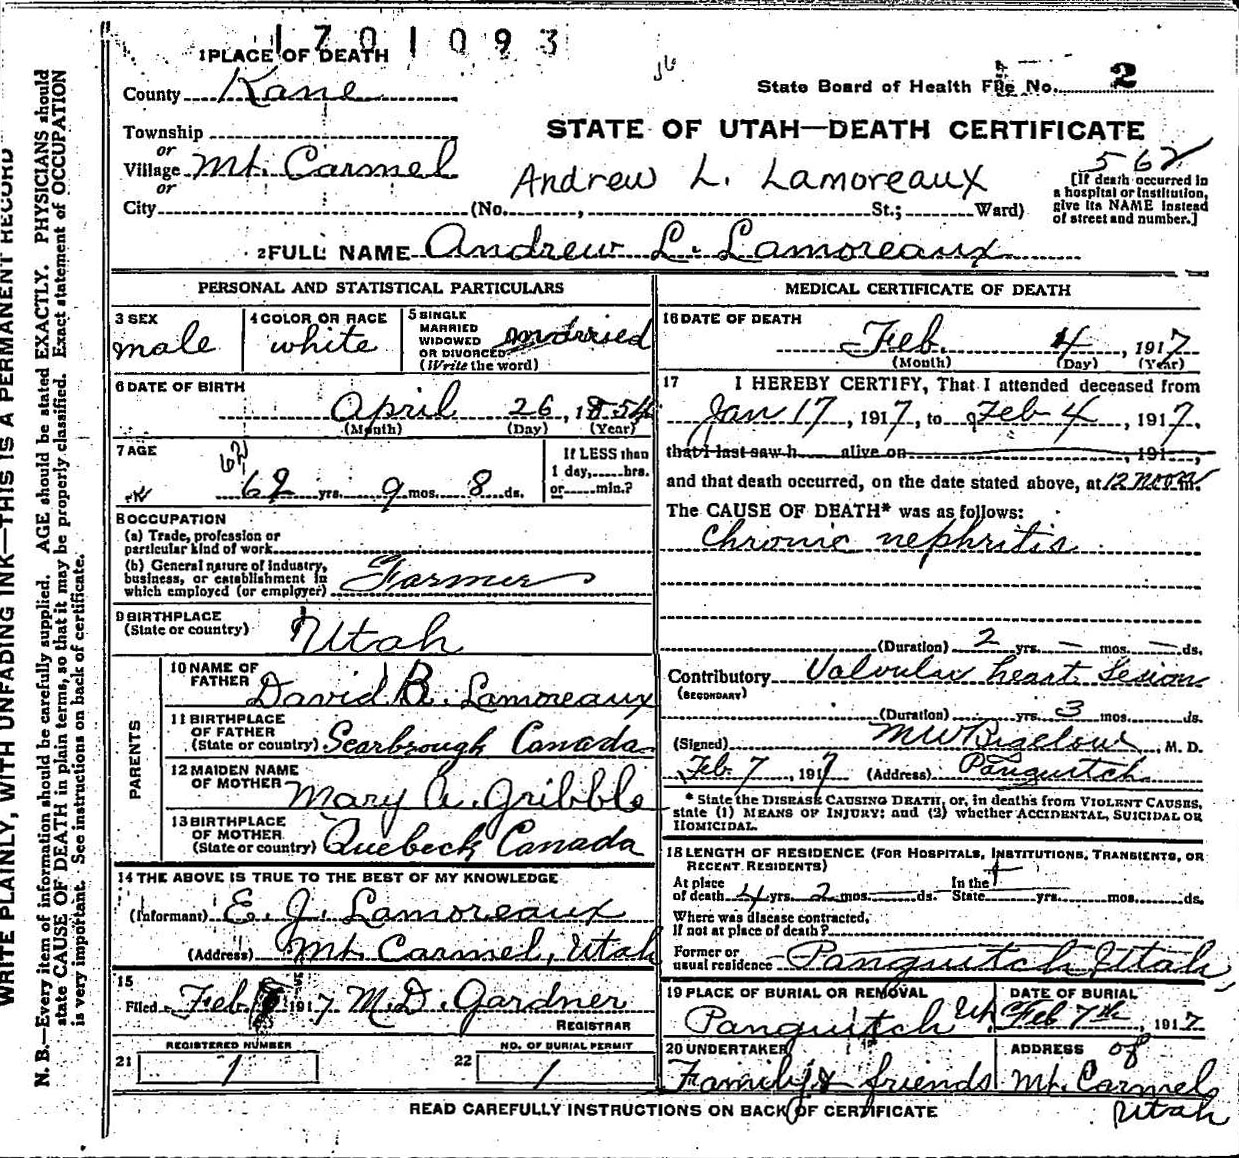 1701093
1 PLACE OF DEATH
County Kane
State Board of Health File No. 2
Township
or
Village Mt. Carmel
or
City (No. , St.; Ward)
STATE OF UTAH—DEATH CERTIFICATE
562
Andrew L. Lamoreaux
[If death occurred in
a hospital or institution,
give its NAME instead
of street and number.]
2 FULL NAME Andrew L. Lamoreaux
PERSONAL AND STATISTICAL PARTICULARS
3 SEX
male
4 COLOR OR RACE
white
5 SINGLE
MARRIED
WIDOWED
OR DIVORCED
(Write the word)
married
6 DATE OF BIRTH
April 26, 1854
(Month) (Day) (Year)
7 AGE
62
62 yrs. 9 mos. 8 ds.
If LESS than
1 day, hrs.
or min.?
8 OCCUPATION
(a) Trade, profession or
particular kind of work
(b) General nature of industry,
business, or establishment in
which employed (or employer) Farmer
9 BIRTHPLACE
(State or country) Utah
PARENTS
10 NAME OF
FATHER David B. Lamoreaux
11 BIRTHPLACE
OF FATHER
(State or country) Scarbrough Canada
12 MAIDEN NAME
OF MOTHER Mary A. Gribble
13 BIRTHPLACE
OF MOTHER
(State or country) Quebeck Canada
14 THE ABOVE IS TRUE TO THE BEST OF MY KNOWLEDGE
(Informant) E. J. Lamoreaux
(Address) Mt. Carmel, Utah
15
Filed Feb 1917 M. D. Gardner
REGISTRAR
REGISTERED NUMBER
21 1
NO. OF BURIAL PERMIT
22 1
MEDICAL CERTIFICATE OF DEATH
16 DATE OF DEATH
Feb. 4, 1917
(Month) (Day) (Year)
17 I HEREBY CERTIFY, That I attended deceased from
Jan 17, 1917, to Feb 4, 1917,
that I last saw h alive on , 191 ,
and that death occurred, on the date stated above, at 12 noon m.
The CAUSE OF DEATH* was as follows:
Chronic nephritis
(Duration) 2 yrs. — mos. — ds.
Contributory Valvular heart Lesion
(SECONDARY)
(Duration) yrs. 3 mos. ds.
(Signed) M W Bigelow, M. D.
Feb 7, 1917 (Address) Panguitch
* State the DISEASE CAUSING DEATH, or, in deaths from VIOLENT CAUSES,
state (1) MEANS OF INJURY; and (2) whether ACCIDENTAL, SUICIDAL OR
HOMICIDAL.
18 LENGTH OF RESIDENCE (FOR HOSPITALS, INSTITUTIONS, TRANSIENTS, OR
RECENT RESIDENTS)
At place
of death 4 yrs. 2 mos. ds.
In the
State yrs. mos. ds.
Where was disease contracted,
If not at place of death?
Former or
usual residence Panguitch Utah
19 PLACE OF BURIAL OR REMOVAL
Panguitch Ut.
DATE OF BURIAL
Feb 7th, 1917
20 UNDERTAKER
Family & friends
ADDRESS
of
Mt. Carmel
Utah
READ CAREFULLY INSTRUCTIONS ON BACK OF CERTIFICATE
WRITE PLAINLY, WITH UNFADING INK—THIS IS A PERMANENT RECORD
N. B.—Every item of information should be carefully supplied. AGE should be stated EXACTLY. PHYSICIANS should
state CAUSE OF DEATH in plain terms, so that it may be properly classified. Exact statement of OCCUPATION
is very important. See instructions on back of certificate.